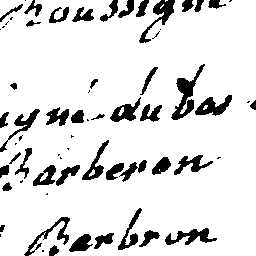 Roussigne
igné du bos
Barberon
Barbron